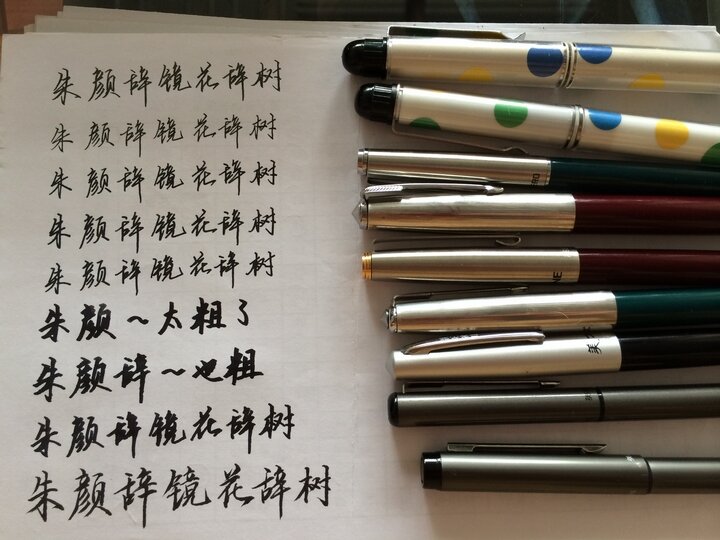 朱颜辞镜花辞树
朱颜辞镜花辞树
朱颜辞镜花辞树
朱颜辞镜花辞树
朱颜辞镜花辞树
朱颜～太粗了
朱颜辞～也粗
朱颜辞镜花辞树
朱颜辞镜花辞树